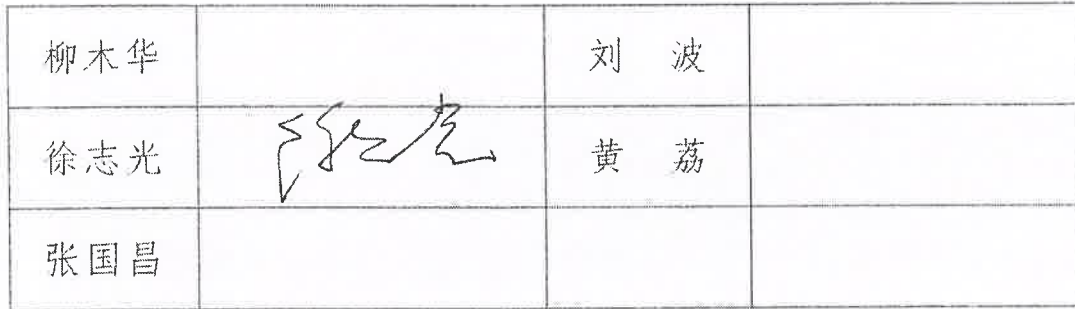 柳木华 刘 波
徐志光 黄 荔
张国昌